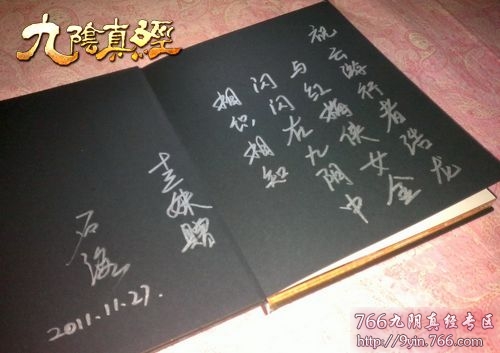 九陰真經
祝云游行者浩龙
与红梅侠女金
闪闪在九阴中
相识相知
十三妹赠
2011.11.27.
766九阴真经专区
http://9yin.766.com